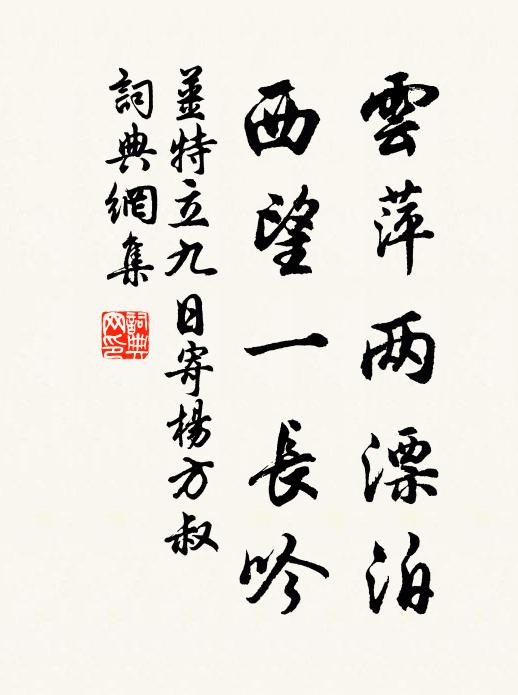 雲萍两漂泊
西望一長吟
姜特立九日寄楊方叔
詞典網集
詞典网印